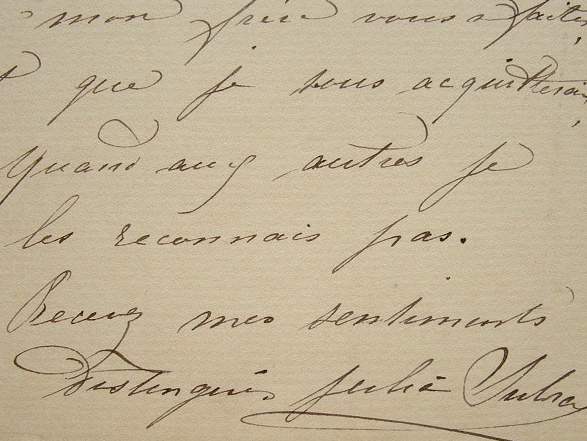 mon frère vous faites
que je vous acquitterai
Quand aux autres je
les reconnais pas.
Recevez mes sentiments
Distingués Julia